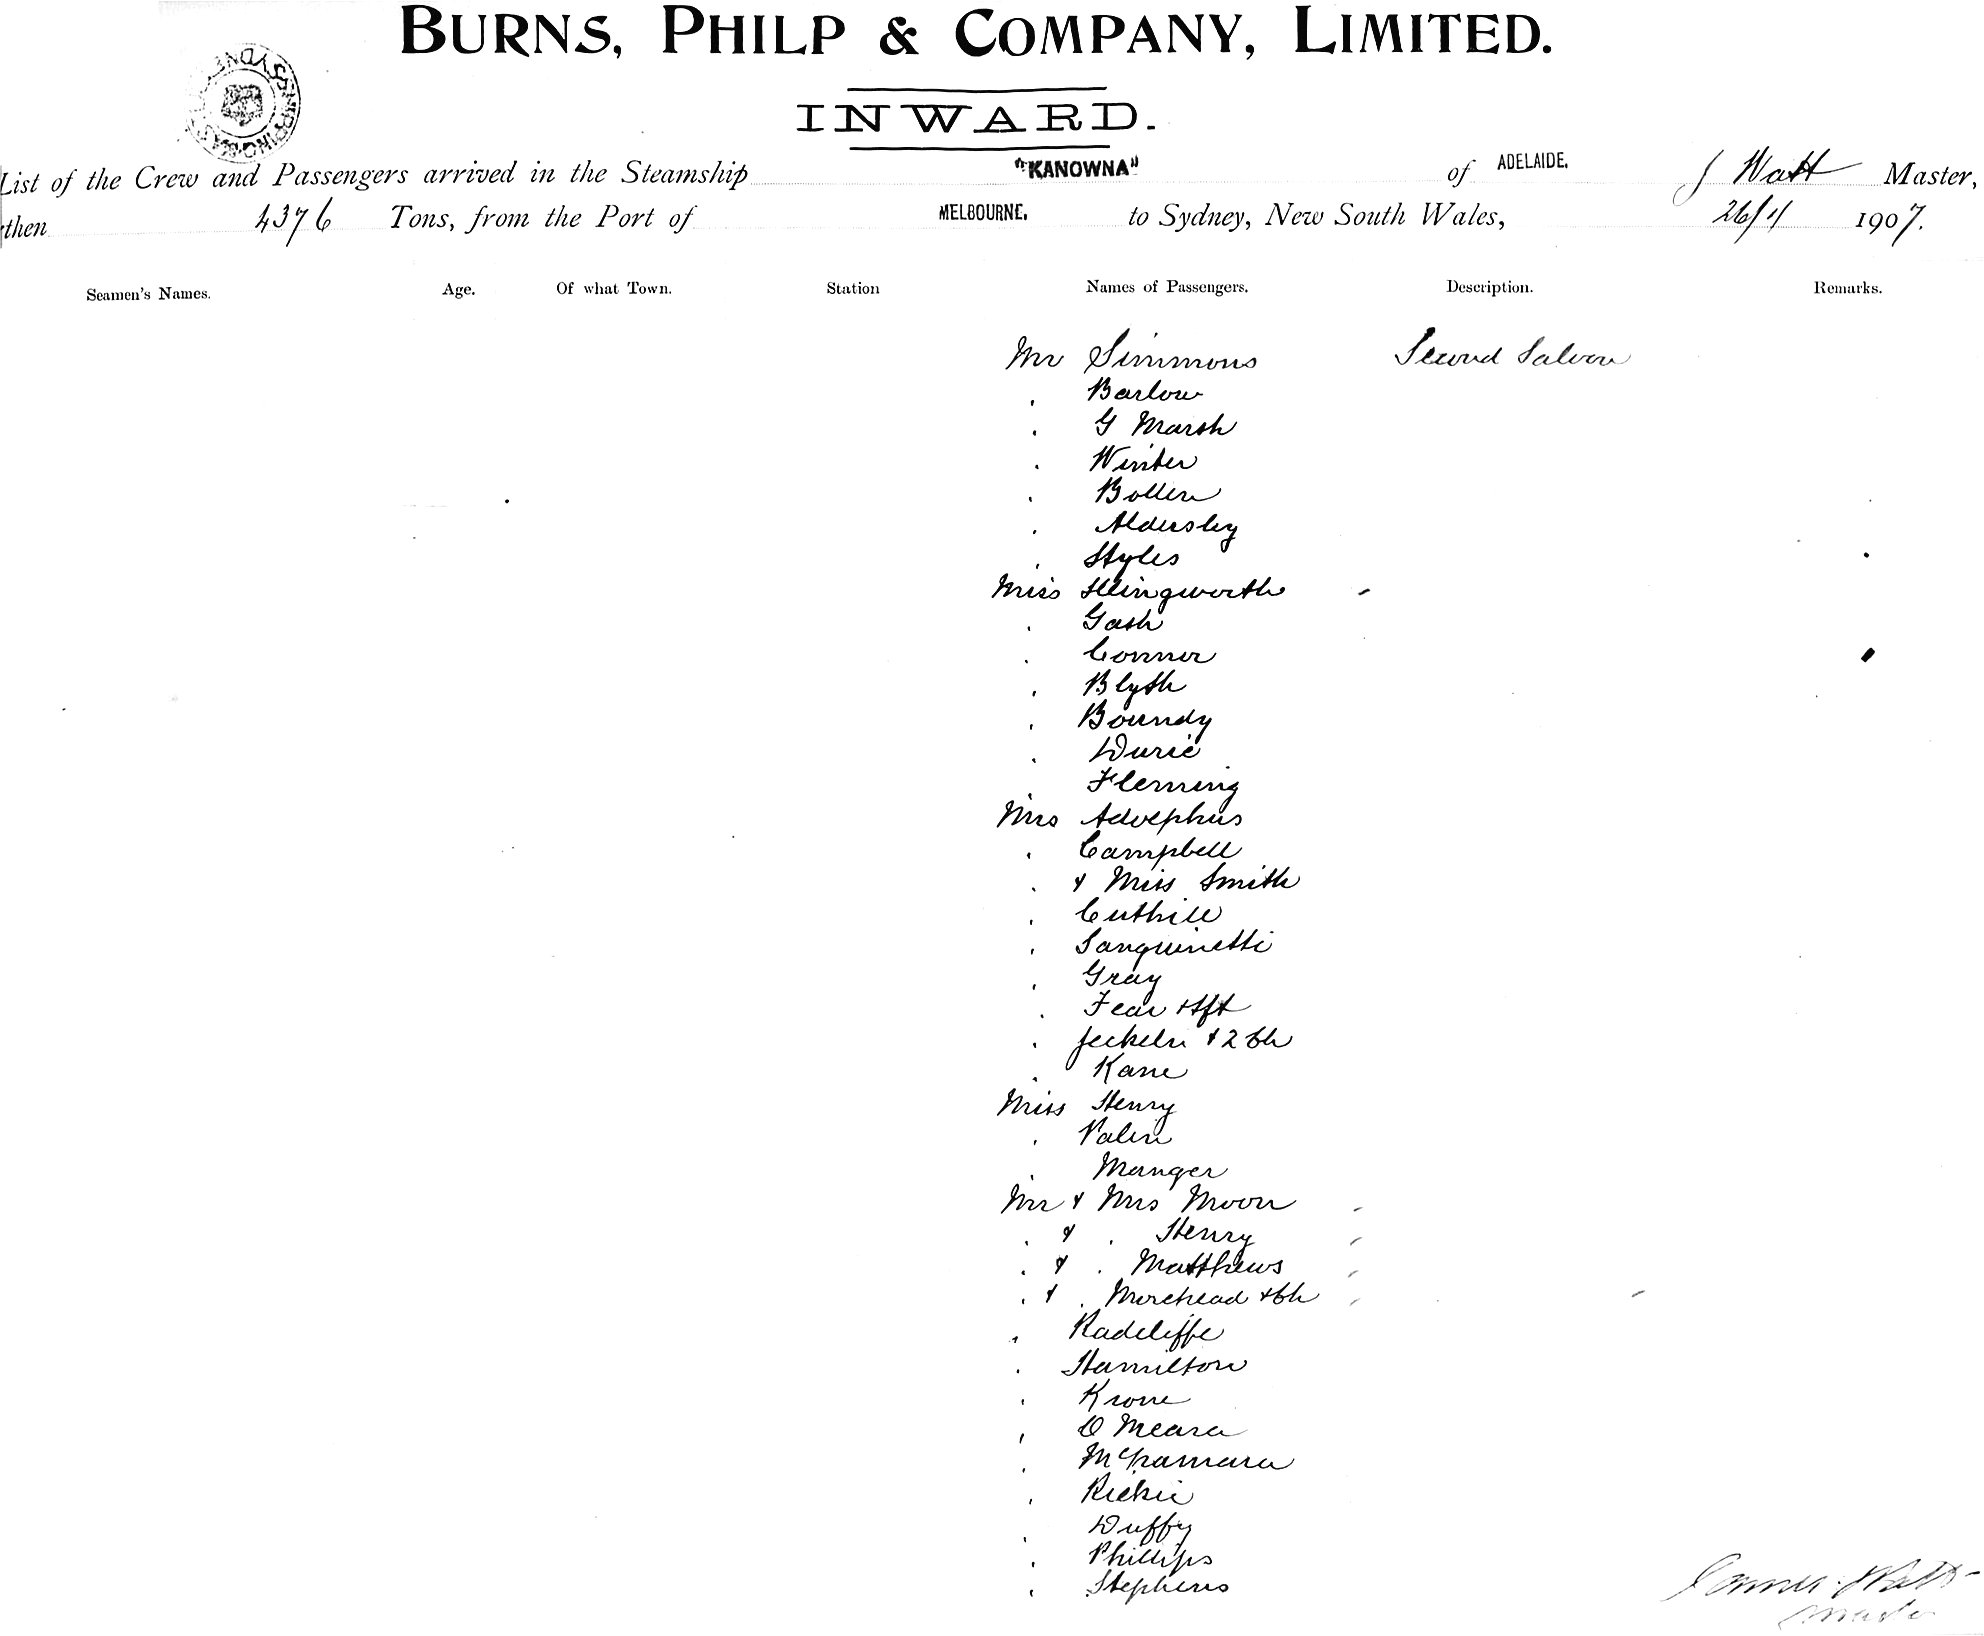 BURNS, PHILP & COMPANY, LIMITED.
INWARD.
List of the Crew and Passengers arrived in the Steamship "KANOWNA" of ADELAIDE. J Watt Master,
then 4376 Tons, from the Port of MELBOURNE. to Sydney, New South Wales, 26/11 1907.
Seamen's Names. Age. Of what Town. Station Names of Passengers. Description. Remarks.
Mr Simmons Second Saloon
" Barlow
" G Marsh
" Winter
" Bollen
" Aldersley
" Styles
Miss Illingworth
" Gash
" Connor
" Blyth
" Boundy
" Durie
" Fleming
Mrs Adolphus
" Campbell
" & Miss Smith
" Cuthill
" Sanguinetti
" Gray
" Fear & Ift
" Jeekeln & 2 Ch
" Kane
Miss Henry
" Palin
" Manger
Mr & Mrs Moon
" & " Henry
" & " Matthews
" & " Morehead & Ch
" Radcliffe
" Hamilton
" Krone
" O Meara
" McNamara
" Rickie
" Duffy
" Phillips
" Stephens
James Watt
Master